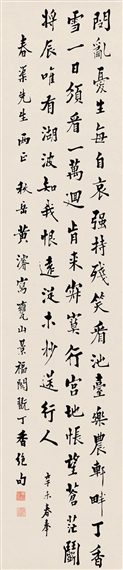 閱亂憂生每自哀強持殘笑看池臺樂農軒畔丁香
雪一日須看一萬迴肯來穿蒿行宮地悵望蒼茫鬭
將辰唯有湖波知我恨遠從木杪送行人 辛未春奉
春渠先生雨正 秋岳黃濬寫甕山景福閣觀丁香絕句